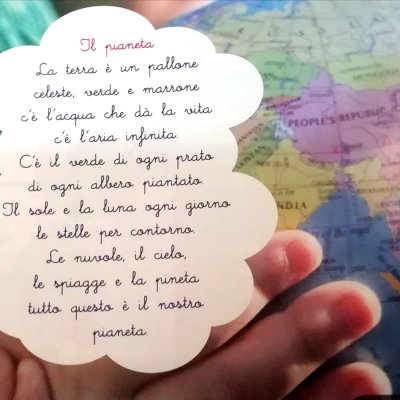 Il pianeta
La terra è un pallone
celeste, verde e marrone
c'è l'acqua che dà la vita
c'è l'aria infinita.
C'è il verde di ogni prato
di ogni albero piantato.
Il sole e la luna ogni giorno
le stelle per contorno.
Le nuvole, il cielo,
le spiagge e la pineta
tutto questo è il nostro
pianeta.
PEOPLE'S REPUBLIC